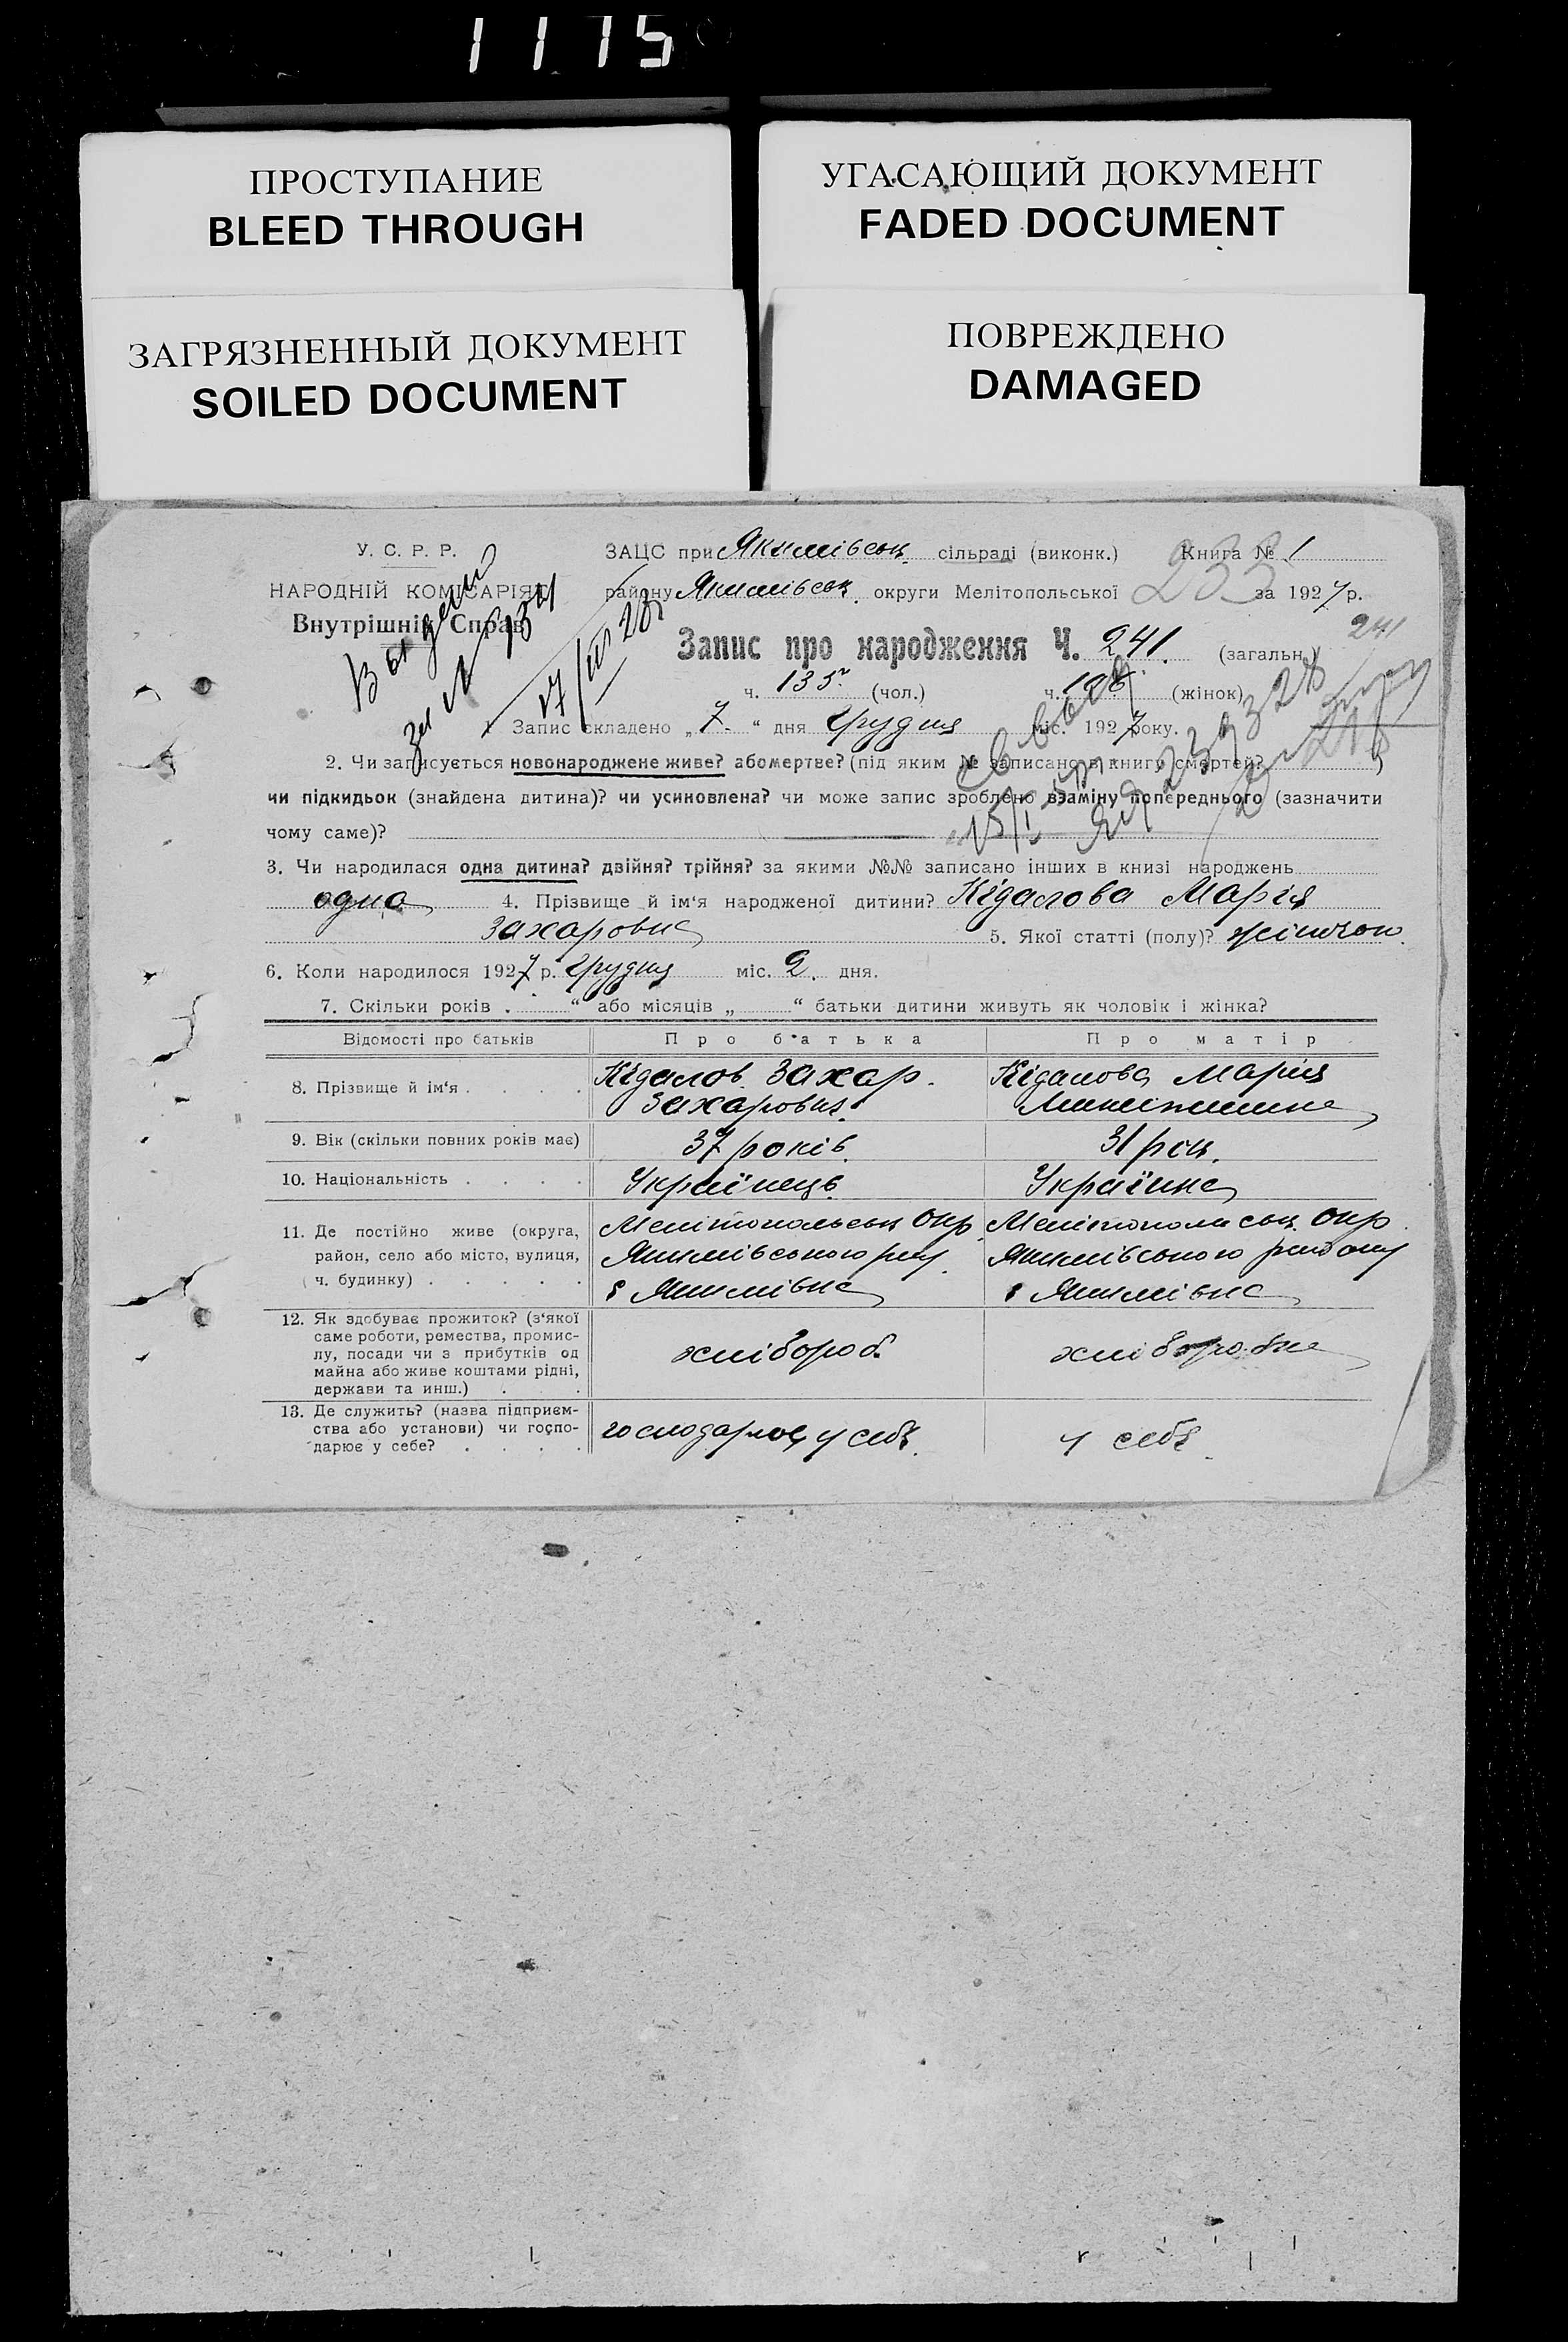 1175
ПРОСТУПАНИЕ
BLEED THROUGH
УГАСАЮЩИЙ ДОКУМЕНТ
FADED DOCUMENT
ЗАГРЯЗНЕННЫЙ ДОКУМЕНТ
SOILED DOCUMENT
ПОВРЕЖДЕНО
DAMAGED
У. С. Р. Р.
НАРОДНІЙ КОМІСАРІЯТ
Внутрішніх Справ
ЗАЦС при Якимівськ. сільраді (виконк.) Книга № 1
району Якимівськ. округи Мелітопольської за 1927 р.
233
241
Запис про народження Ч. 241. (загальн.)
ч. 135 (чол.) ч. 106 (жінок)
Запис складено „7.“ дня Грудня міс. 1927 року.
2. Чи записується новонароджене живе? або мертве? (під яким № записано в книгу смертей?)
чи підкидьок (знайдена дитина)? чи усиновлена? чи може запис зроблено взаміну попереднього (зазначити
чому саме)?
3. Чи народилася одна дитина? двійня? трійня? за якими №№ записано інших в книзі народжень
одна 4. Прізвище й ім‘я народженої дитини? Кідалова Марія
Захаровна 5. Якої статті (полу)? жіночои.
6. Коли народилося 1927 р. Грудня міс. 2. дня.
7. Скільки років „ “ або місяців „ “ батьки дитини живуть як чоловік і жінка?
Відомості про батьків Про батька Про матір
8. Прізвище й ім‘я . . . . Кідалов Захар. Захарович. Кідалова Марія
9. Вік (скільки повних років має) 37 років. 31 рік.
10. Національність . . . . Українець. Українка
11. Де постійно живе (округа,
район, село або місто, вулиця,
ч. будинку) . . . . .
Мелітопольськ Окр
Якимівського рну
с Якимівка
Мелітопольськ. Окр.
Якимівського району
с Якимівка
12. Як здобуває прожиток? (з‘якої
саме роботи, ремества, промис-
лу, посади чи з прибутків од
майна або живе коштами рідні,
держави та инш.) . .
хлібороб.
хліборобка
13. Де служить? (назва підприєм-
ства або установи) чи госпо-
дарює у себе? . . . .
господарює у себе.
у себе.
Выдан
за № 1341
17/III 28